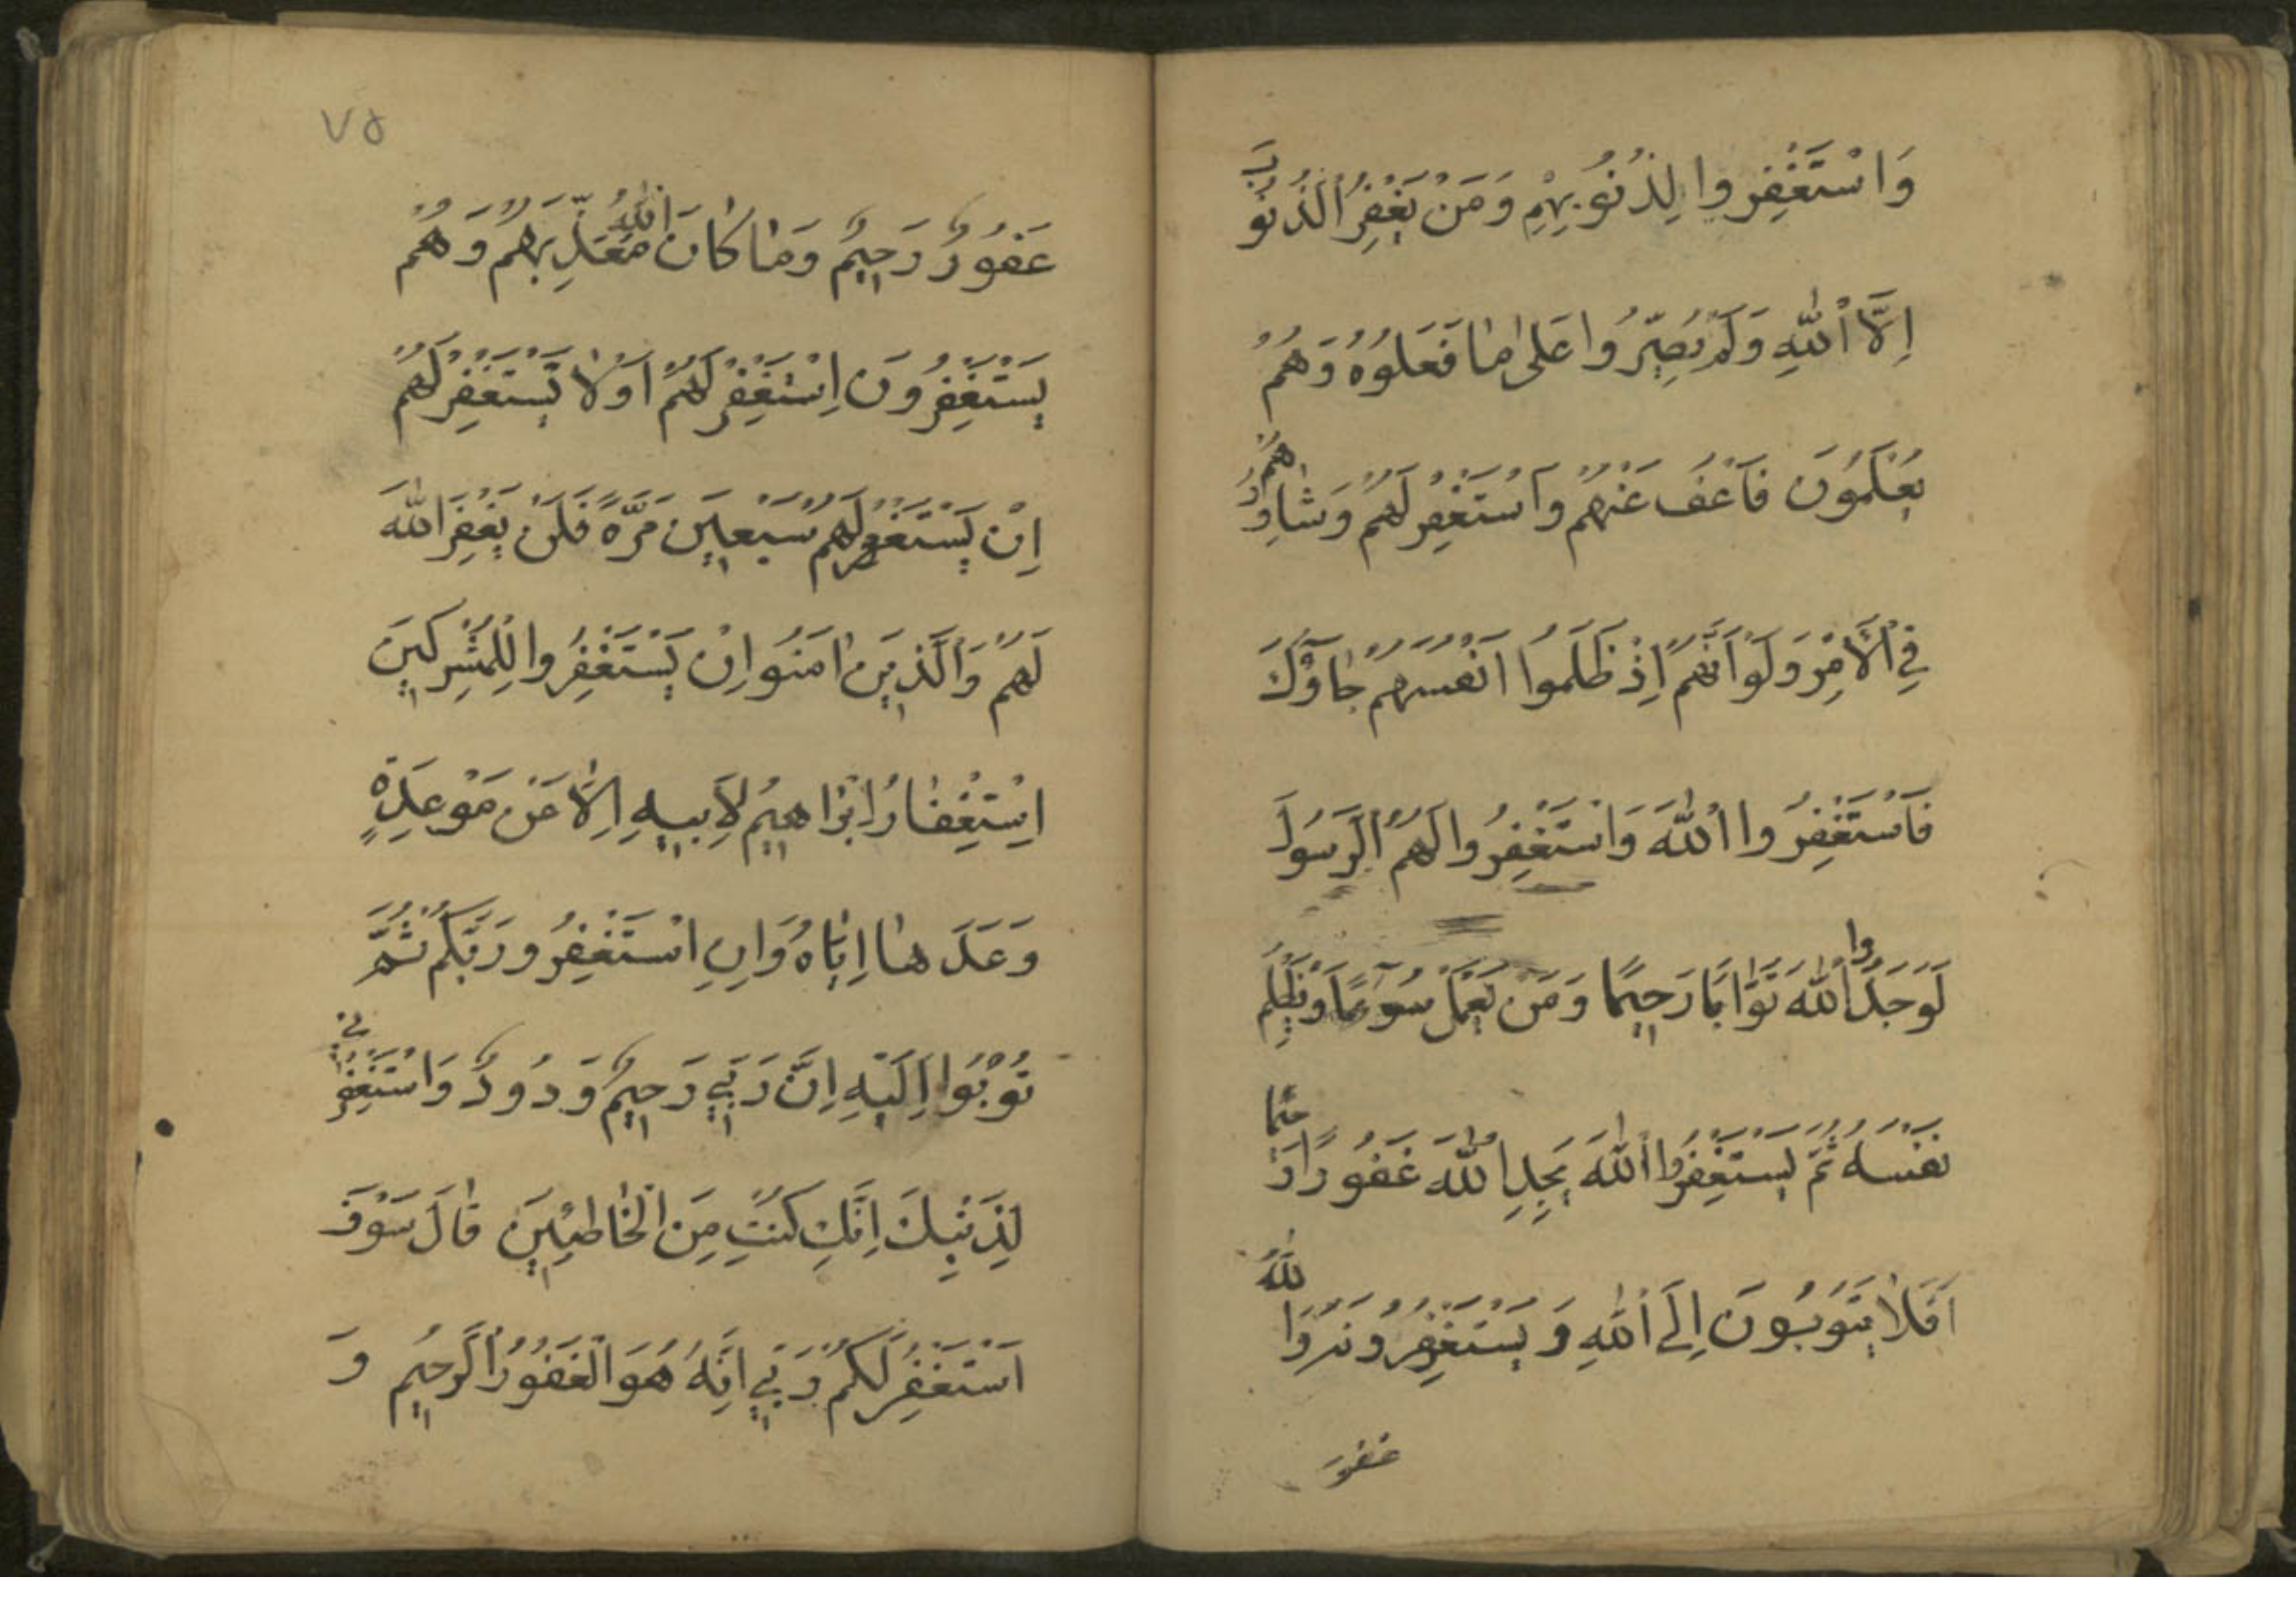 وَاسْتَغْفِروا لِذُنُوبِهِمْ وَمَنْ يَغْفِرُ الذُنُوبَ
اِلَّا اللّٰهِ وَلَمْ يُصِرُّوا عَلىٰ مٰا فَعَلُوهُ وَهُمْ
يَعْلَمُونَ فَاعْفُ عَنْهُمْ وَاسْتَغْفِرْ لَهُمْ وَشٰاوِرْهُمْ
فِي الْاَمْرِ وَلَوْ اَنَّهُمْ اِذْ ظَلَمُوا اَنْفُسَهُمْ جٰاؤُكَ
فَاسْتَغْفِرُوا اللّٰهَ وَاسْتَغْفِرُوا لَهُمُ الرَسُولَ
لَوَجَدُوا اللّٰهَ تَوّٰابًا رَحِيمًا وَمَن يَعْمَلْ سُوءًا اَوْ يَظْلِمْ
نَفْسَهُ ثُمَّ يَسْتَغْفِرُوا اللّٰهَ يَجِدِ اللّٰهَ غَفُورًا رَحيمًا
اَفَلاٰ يَتُوبُونَ اِلَى اللّٰهِ وَ يَسْتَغْفِرُونَهُ وَاللّٰهُ
غفور
٧٥
غَفُورٌ رَحِيمٌ وَمٰا كٰانَ اللّٰهُ مُعَذِّبَهُمْ وَهُمْ
يَسْتَغْفِرُونَ اِسْتَغْفِرْ لَهُمْ اَوْلاٰ تَسْتَغْفِرْ لَهُمْ
اِنْ يَسْتَغْفِرْ لَهُمْ سَبْعِينَ مَرَّةً فَلَنْ يَغْفِرَ اللّٰهَ
لَهُمْ وَالَّذِينَ اٰمَنُوا اِنْ يَسْتَغْفِرُوا لِلْمُشْرِكِينَ
اِسْتِغْفٰارُ اِبْرٰاهِيمُ لِاَبِيهِ اِلّٰا عَنْ مَوْعِدَةٍ
وَعَدَهٰا اِيّٰاهُ وَاِنِ اسْتَغْفِرُو رَبَّكُمْ ثُمَّ
تُوبُوا اِلَيْهِ اِنَّ رَبِّي رَحِيمٌ وَدُودٌ وَاسْتَغْفِرِي
لِذَنْبِكَ اِنَّكِ كُنْتِ مِنَ الْخٰاطِئِينَ قٰالَ سَوْفَ
اَسْتَغْفِرُ لَكُمْ رَبِّي اِنَّهُ هُوَ الْغَفُورُ الرَّحِيمُ وَ